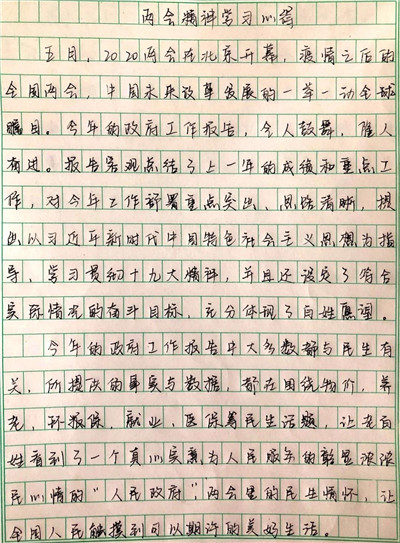 两会精神学习心得
五月，2020两会在北京开幕，疫情之后的
全国两会，中国未来改革发展的一举一动全球
瞩目。今年的政府工作报告，令人鼓舞，催人
有过。报告客观总结了上一年的成绩和重点工
作，对今年工作部署重点突出、思路清晰，提
出以习近平新时代中国特色社会主义思想为指
导，学习贯彻十九大精神，并且还设定了符合
实际情况的奋斗目标，充分体现了百姓愿望。
今年的政府工作报告中大多数都与民生有
关，所提供的事实与数据，都在围绕物价，养
老，环保，就业，医保等民生话题，让老百
姓看到了一个真心实意为人民服务的彰显浓浓
民心情的"人民政府"，两会里的民生情怀，让
全国人民触摸到可以期许的美好生活。